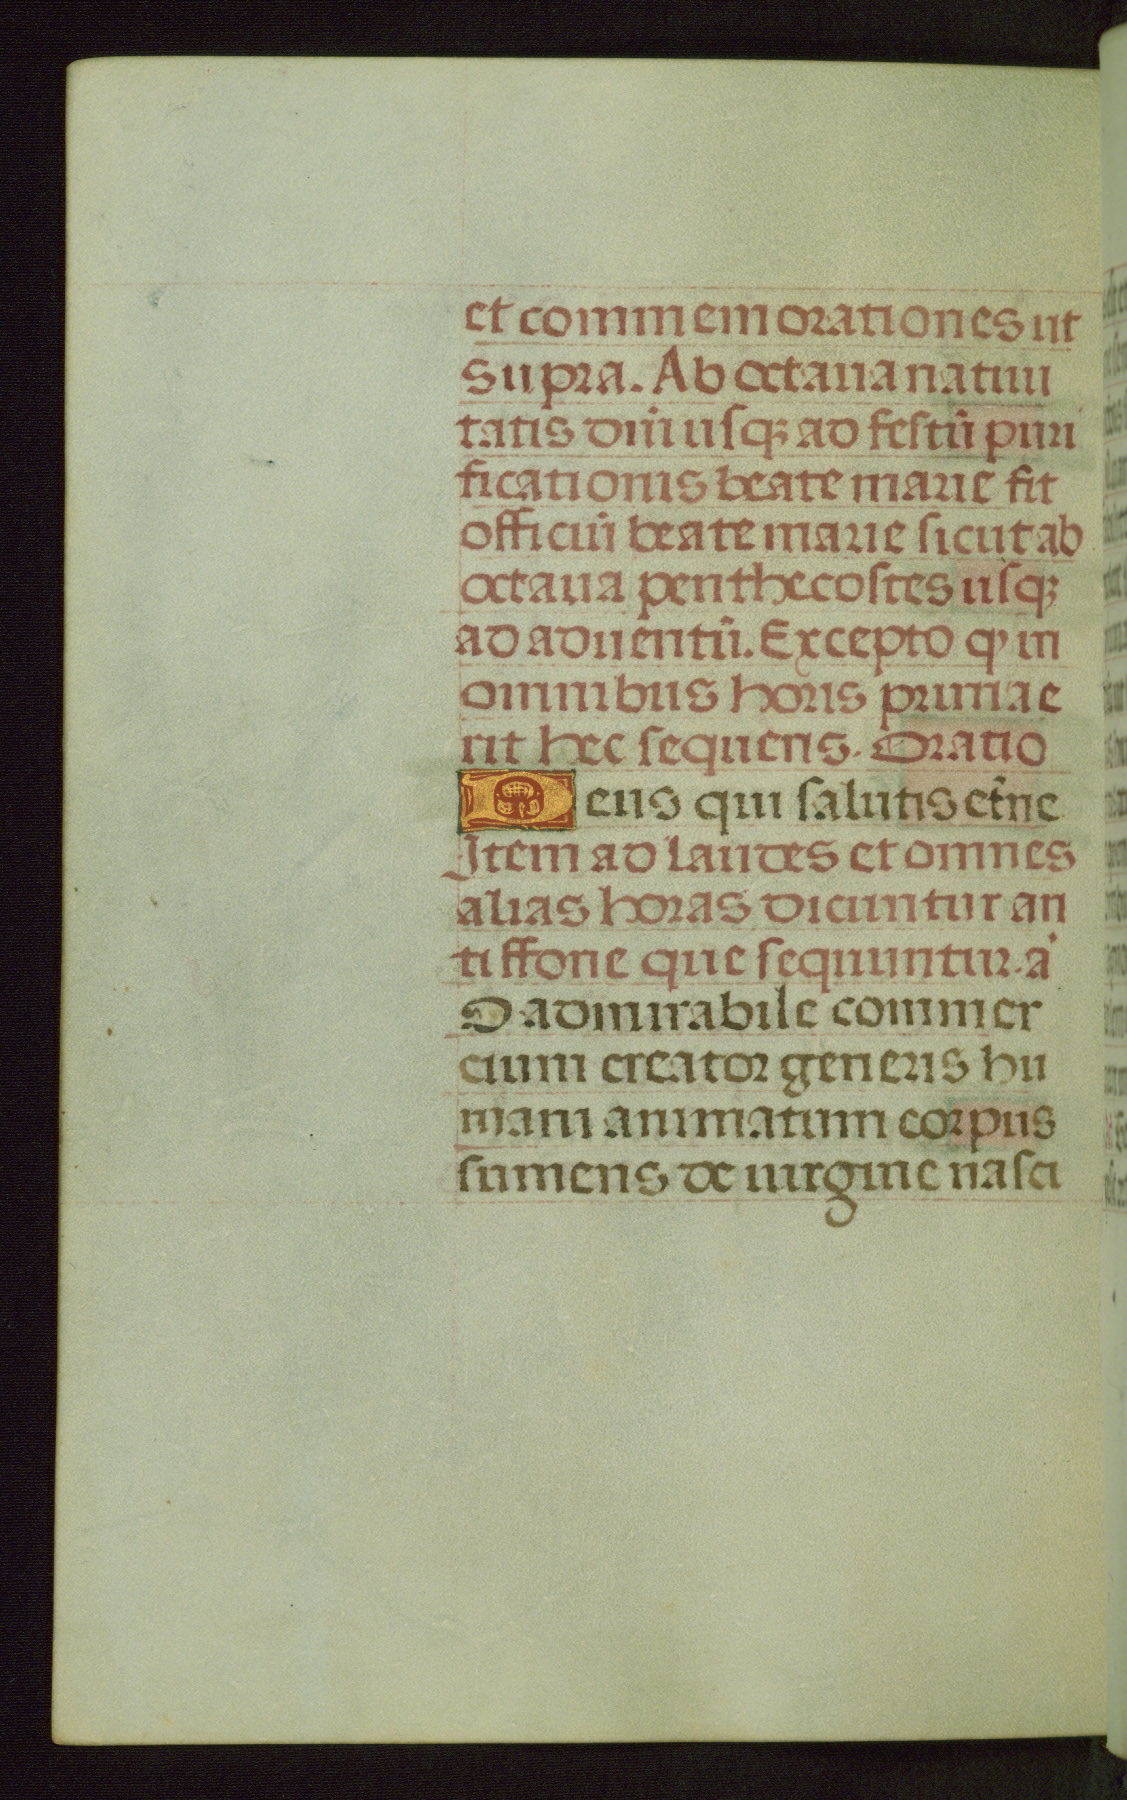 et commemorationes ut
supra. Ab octaua natiui
tatis dn̄i usq; ad festū puri
ficationis beate marie fit
officiū beate marie sicut ab
octaua penthecostes usq;
ad aduentū. Excepto qꝪ in
omnibus horis prima e
rit hec sequens. Oratio
Deus qui salutis et̄ne
Item ad laudes et omnes
alias horas dicuntur an
tiffone que sequuntur. a᷒
O admirabile commer
cium creator generis hu
mani animatum corpus
sumens de uirgine nasci